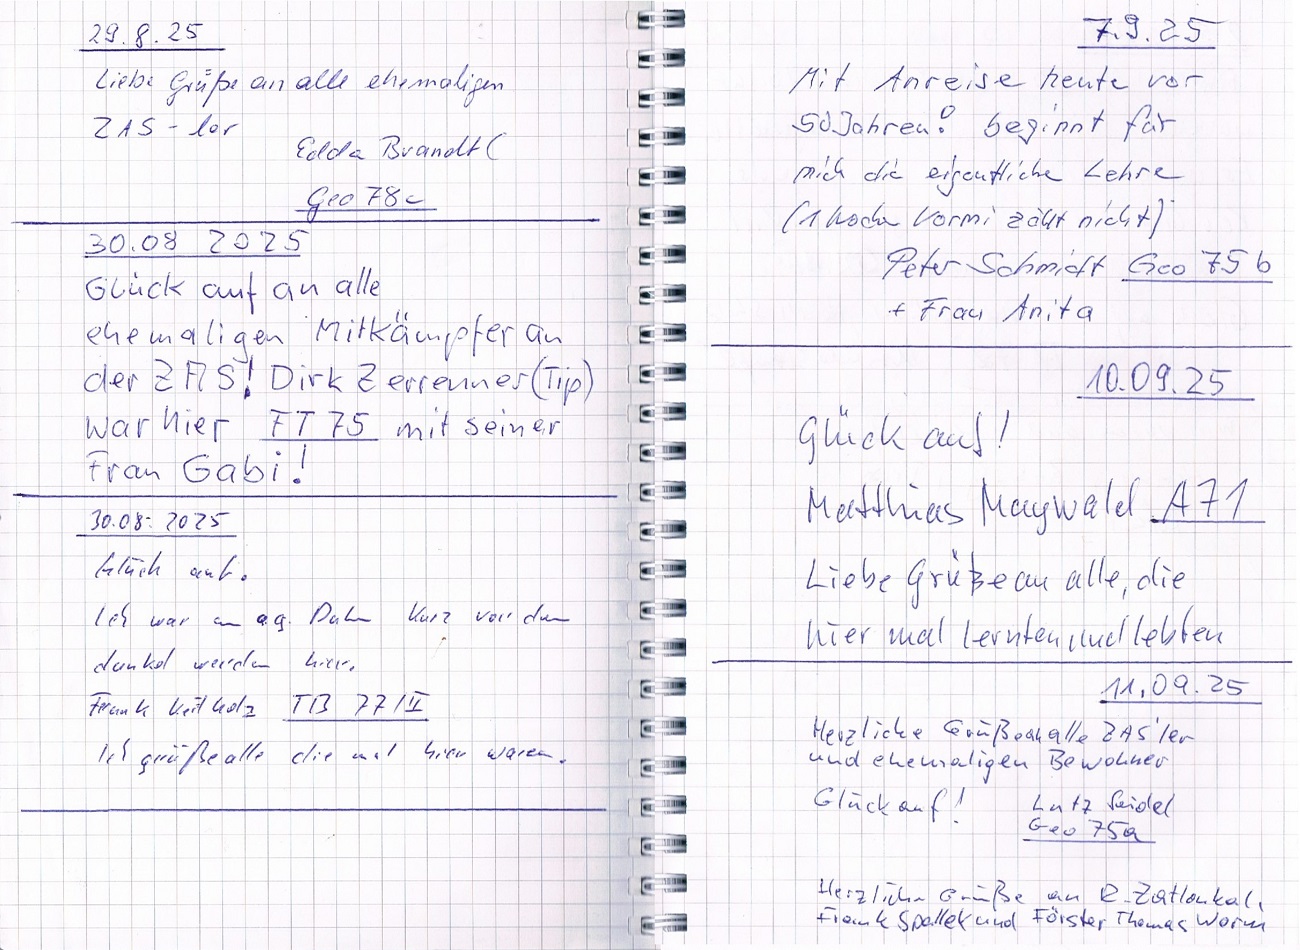 29.8.25
Liebe Grüße an alle ehemaligen
ZAS-ler
Edda Brandt(
Geo 78c
30.08 2025
Glück auf an alle
ehemaligen Mitkämpfer an
der ZAS! Dirk Zerrenner (Tip)
war hier FT 75 mit seiner
Frau Gabi!
30.08. 2025
Glück auf.
Ich war am og. Datum kurz vor dem
dunkel werden hier.
Frank TB 77/II
Ich grüße alle die mal hier waren.
7.9.25
Mit Anreise heute vor
50 Jahren! beginnt für
mich die eigentliche Lehre
(1 Woche Vormi zählt nicht)
Peter Schmidt Geo 75 b
+ Frau Anita
10.09.25
Glück auf!
Matthias Maywald A71
Liebe Grüße an alle, die
hier mal lernten und lebten
11.09.25
Herzliche Grüße an alle ZAS'ler
und ehemaligen Bewohner
Glück auf! Lutz Seidel
Geo 75a
Herzliche Grüße an R. Zatloukal,
Frank Spallek und Förster Thomas Worm